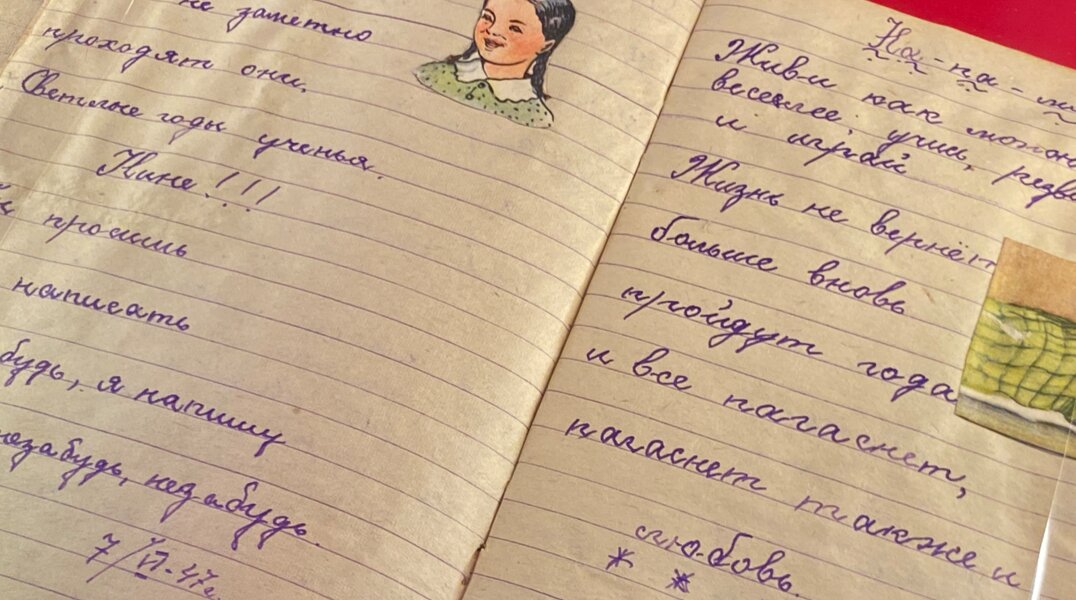 не заметно
проходят они,
Светлые годы ученья.
Нине!!!
просишь
написать
будь, я напишу
незабудь, незабудь.
7/VI-47г.
На-па-
Живи как можно
веселее: учись, резви
и играй
Жизнь не вернёт
больше вновь
пройдут года
и все пагаснет,
пагаснет также и
любовь.
* *